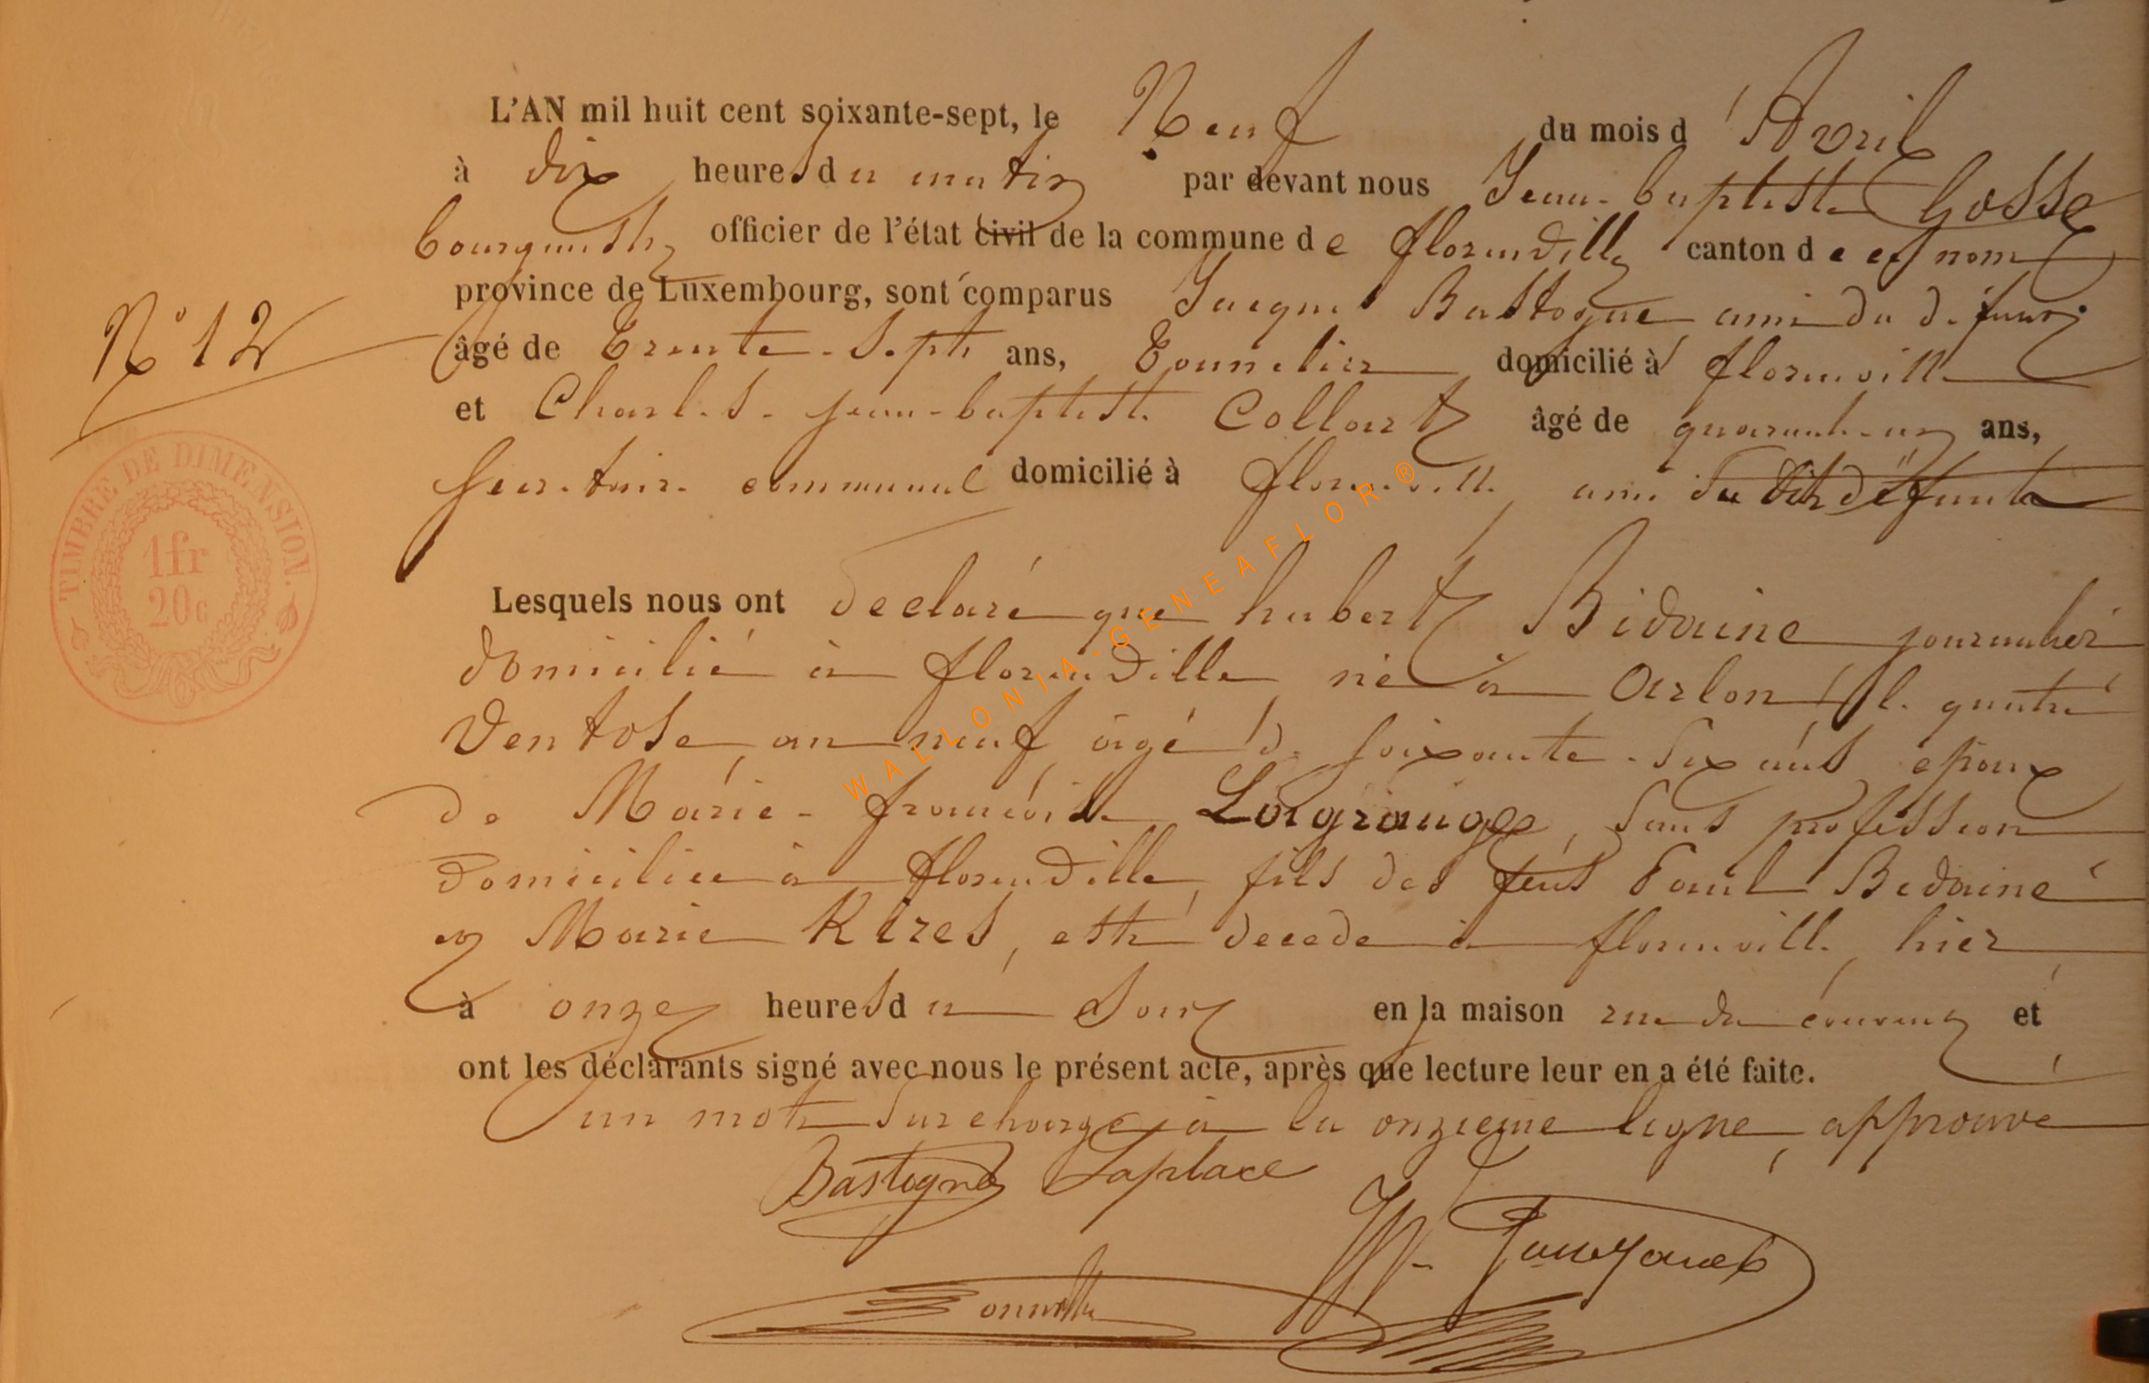 L'AN mil huit cent soixante-sept, le Neuf du mois d'Avril
à dix heures du matin par devant nous Jean-baptiste Gosse
bourgmestre officier de l'état civil de la commune de florenville canton de ce nom
province de Luxembourg, sont comparus Jacques Bastogne ami du defunt
N° 12
âgé de Trente-Sept ans, Tonnelier domicilié à florenville
et Charles-jean-baptiste Collart âgé de quarante-un ans,
Secretaire communal domicilié à florenville, ami du dit défunt
TIMBRE DE DIMENSION.
1fr
20c
Lesquels nous ont declaré que hubert Bidaine journalier
domicilié à florenville, né à Arlon, le quatre
Ventose an neuf, âgé de soixante-Six ans, epoux
de Marie-francoise Lagrange, Sans profession
domiciliee à florenville, fils des feus Paul Bidaine
et Marie Kires, est decede à florenville, hier
à onze heures du Soir en la maison rue du couvent et
ont les déclarants signé avec nous le présent acte, après que lecture leur en a été faite.
un mot Surchargé à la onzieme ligne, approuvé
Bastogne Laplace
WALLONIA-GENEAFLOR®